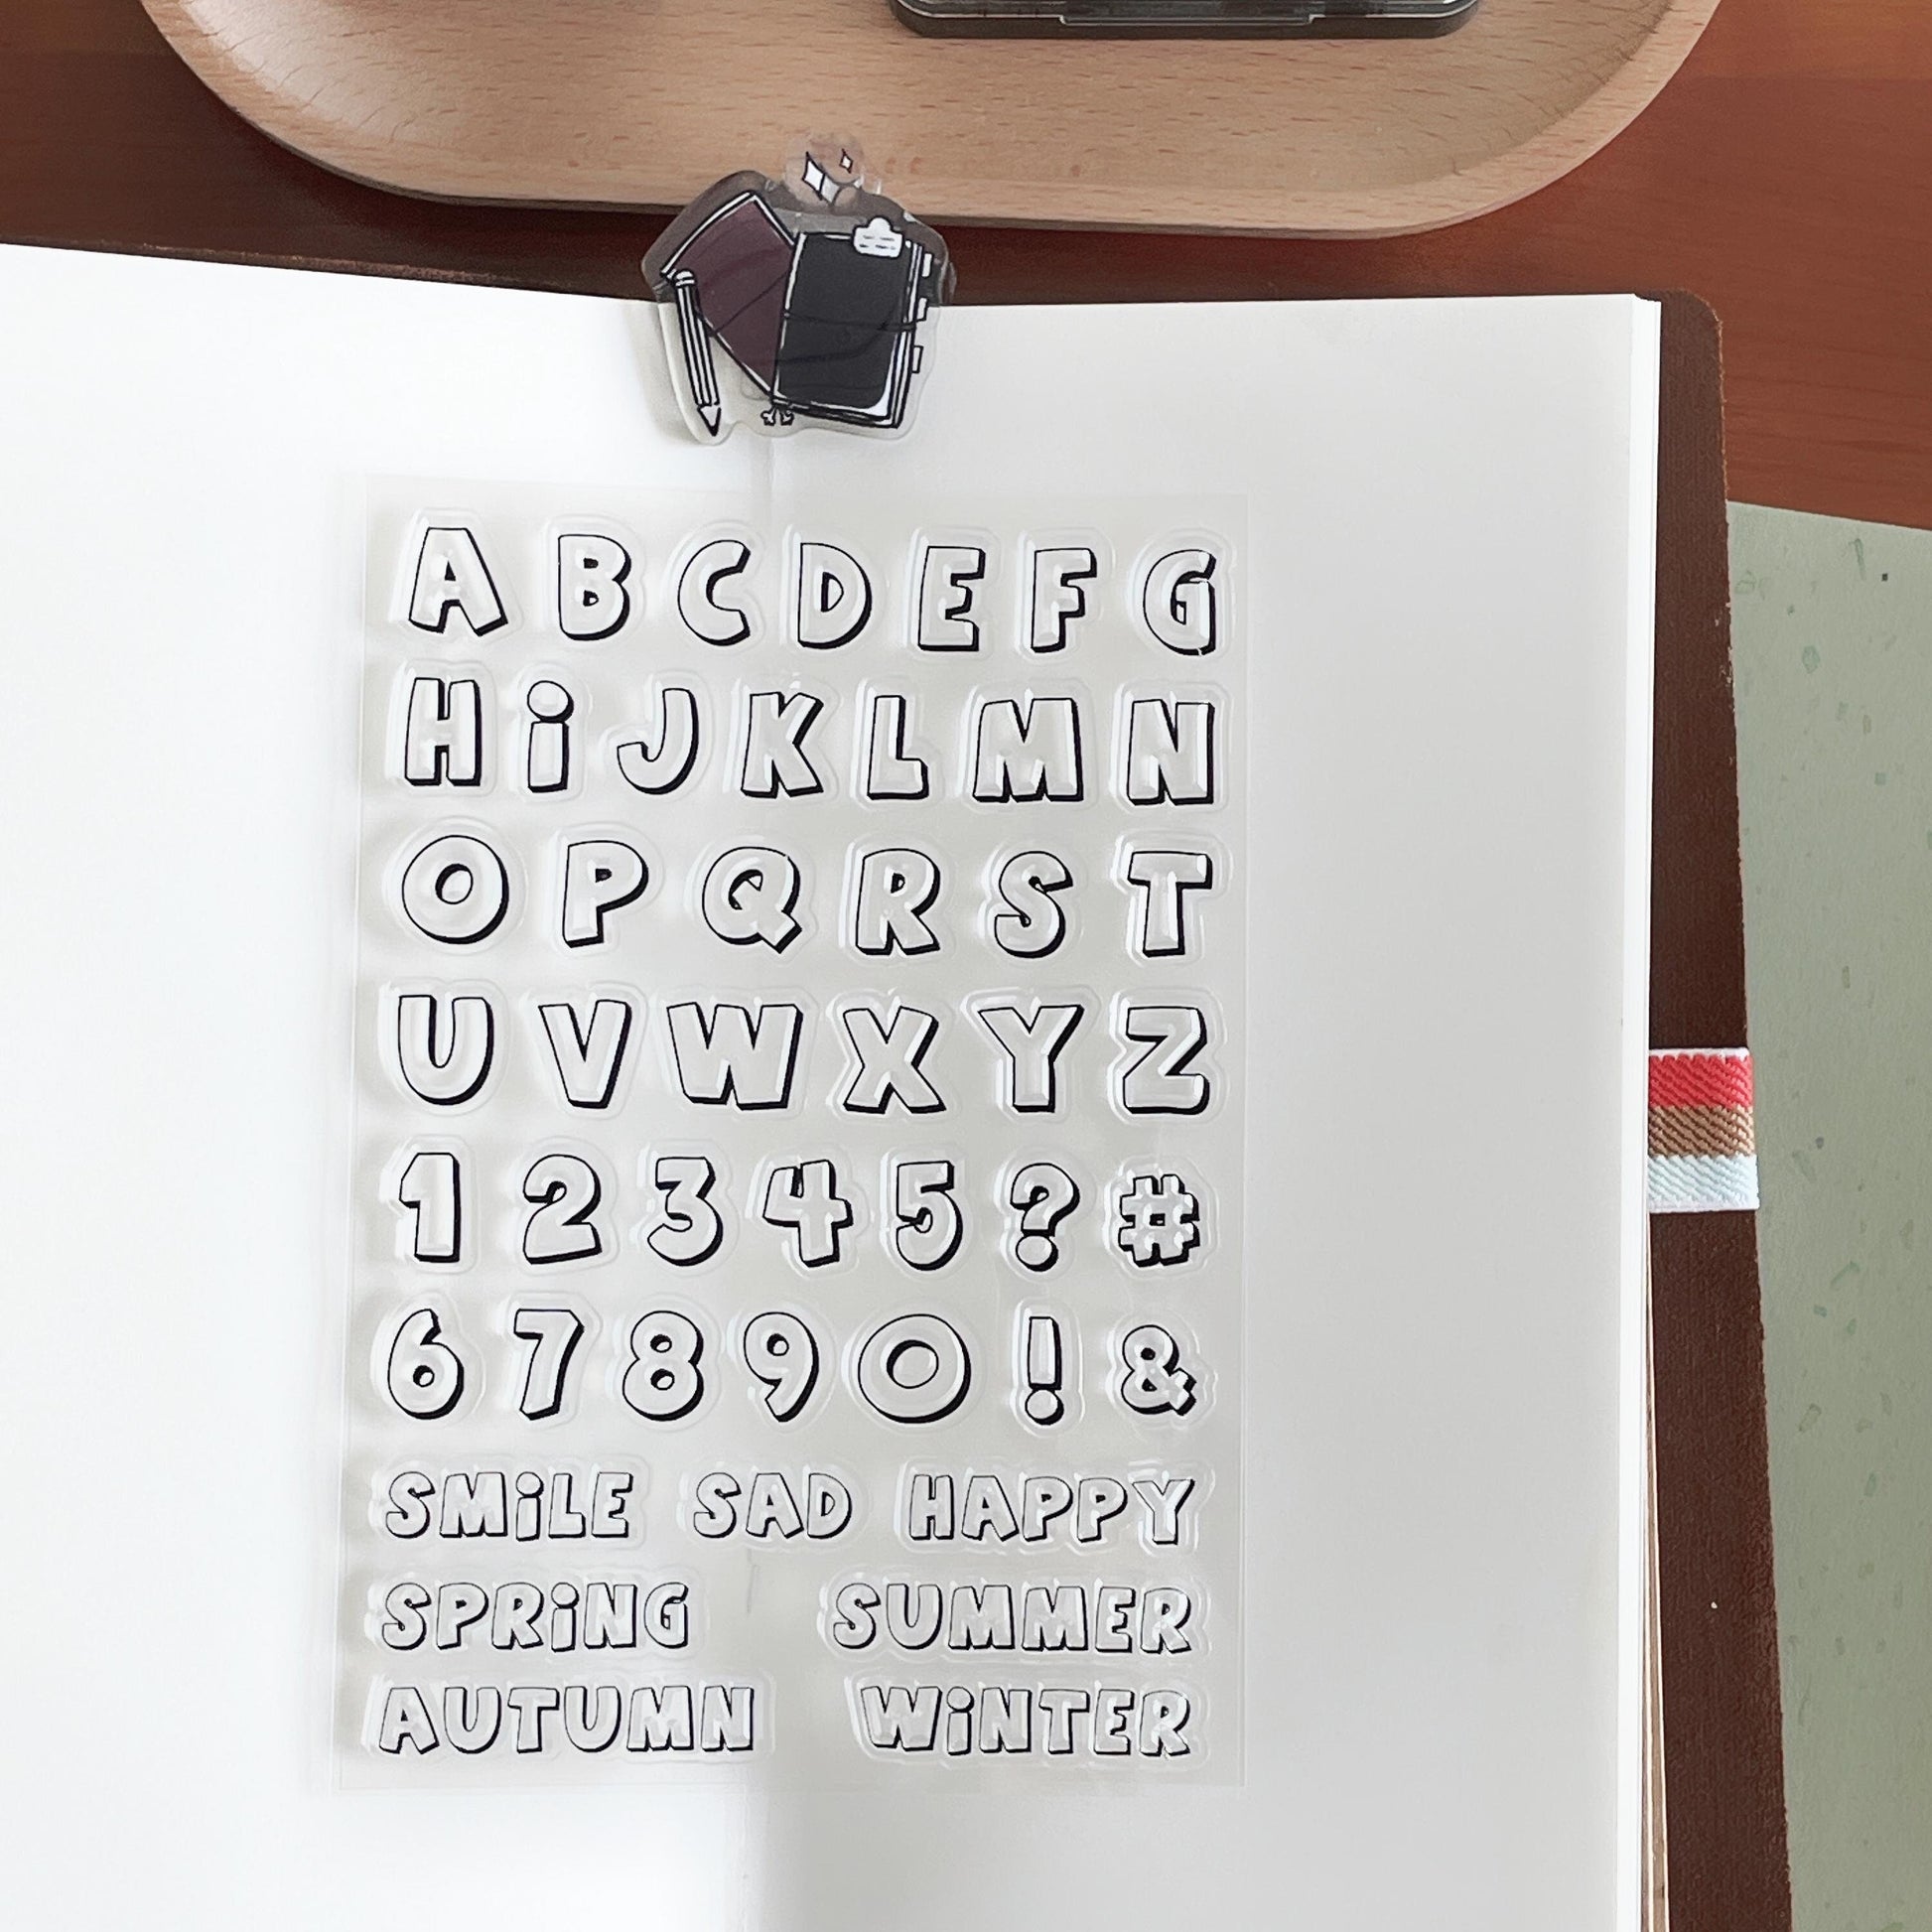 A B C D E F G
H i J K L M N
O P Q R S T
U V W X Y Z
1 2 3 4 5 ? #
6 7 8 9 0 ! &
SMiLE SAD HAPPY
SPRiNG SUMMER
AUTUMN WiNTER